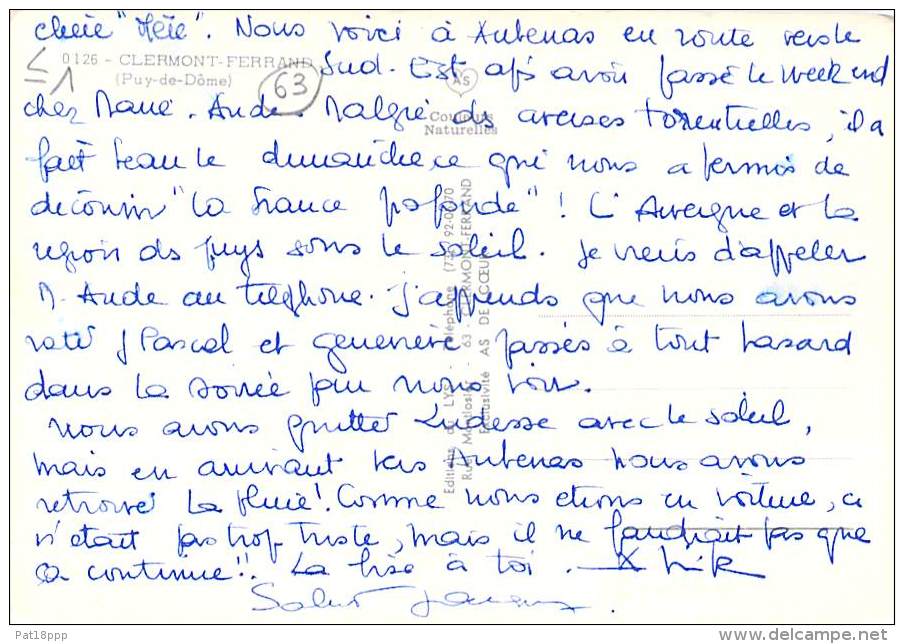 chère "Mète". Nous voici à Aubenas en route vers le
0126 - CLERMONT-FERRAND
(Puy-de-Dôme)
63
Sud. Est aps avoir passé le week end
chez Marie. Aude. Malgré ds averses torrentielles, il a
Couleurs
Naturelles
LYS
fait beau le dimanche, ce qui nous a permis de
découvrir "la France profonde"! L'Auvergne et la
région ds puys sous le soleil. Je viens d'appeler
M. Aude au téléphone. J'apprends que nous avons
raté J Pascal et geneviève passés à tout hasard
dans la soirée pour nous voir.
nous avons quitter Ludesse avec le soleil,
mais en arrivant vers Aubenas nous avons
retrouvé la pluie! Comme nous étions en voiture, ça
n'était pas trop triste, mais il ne faudrait pas que
ça continue!! La bise à toi.
Salut
Editions du LYS - Téléphone
63 - CLERMONT-FERRAND
Exclusivité AS DE CŒUR
Pat18ppp
delcampe.net